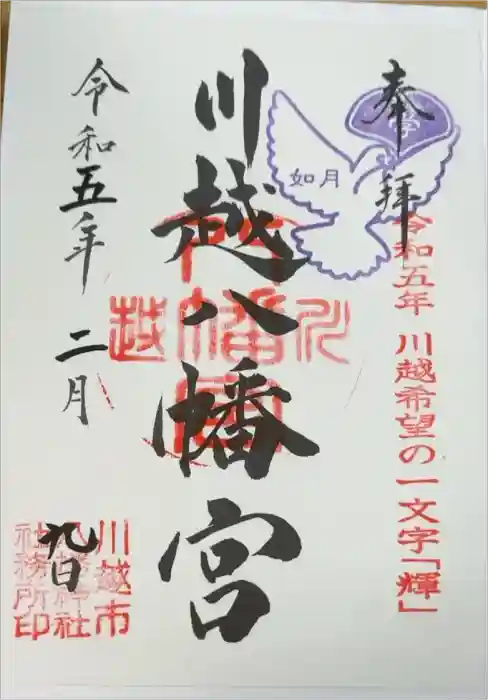 奉拝
学
如月
令和五年 川越希望の一文字「輝」
川越八幡宮
川越
八幡宮
令和五年 二月
九日
川越市
八幡神社
社務所印